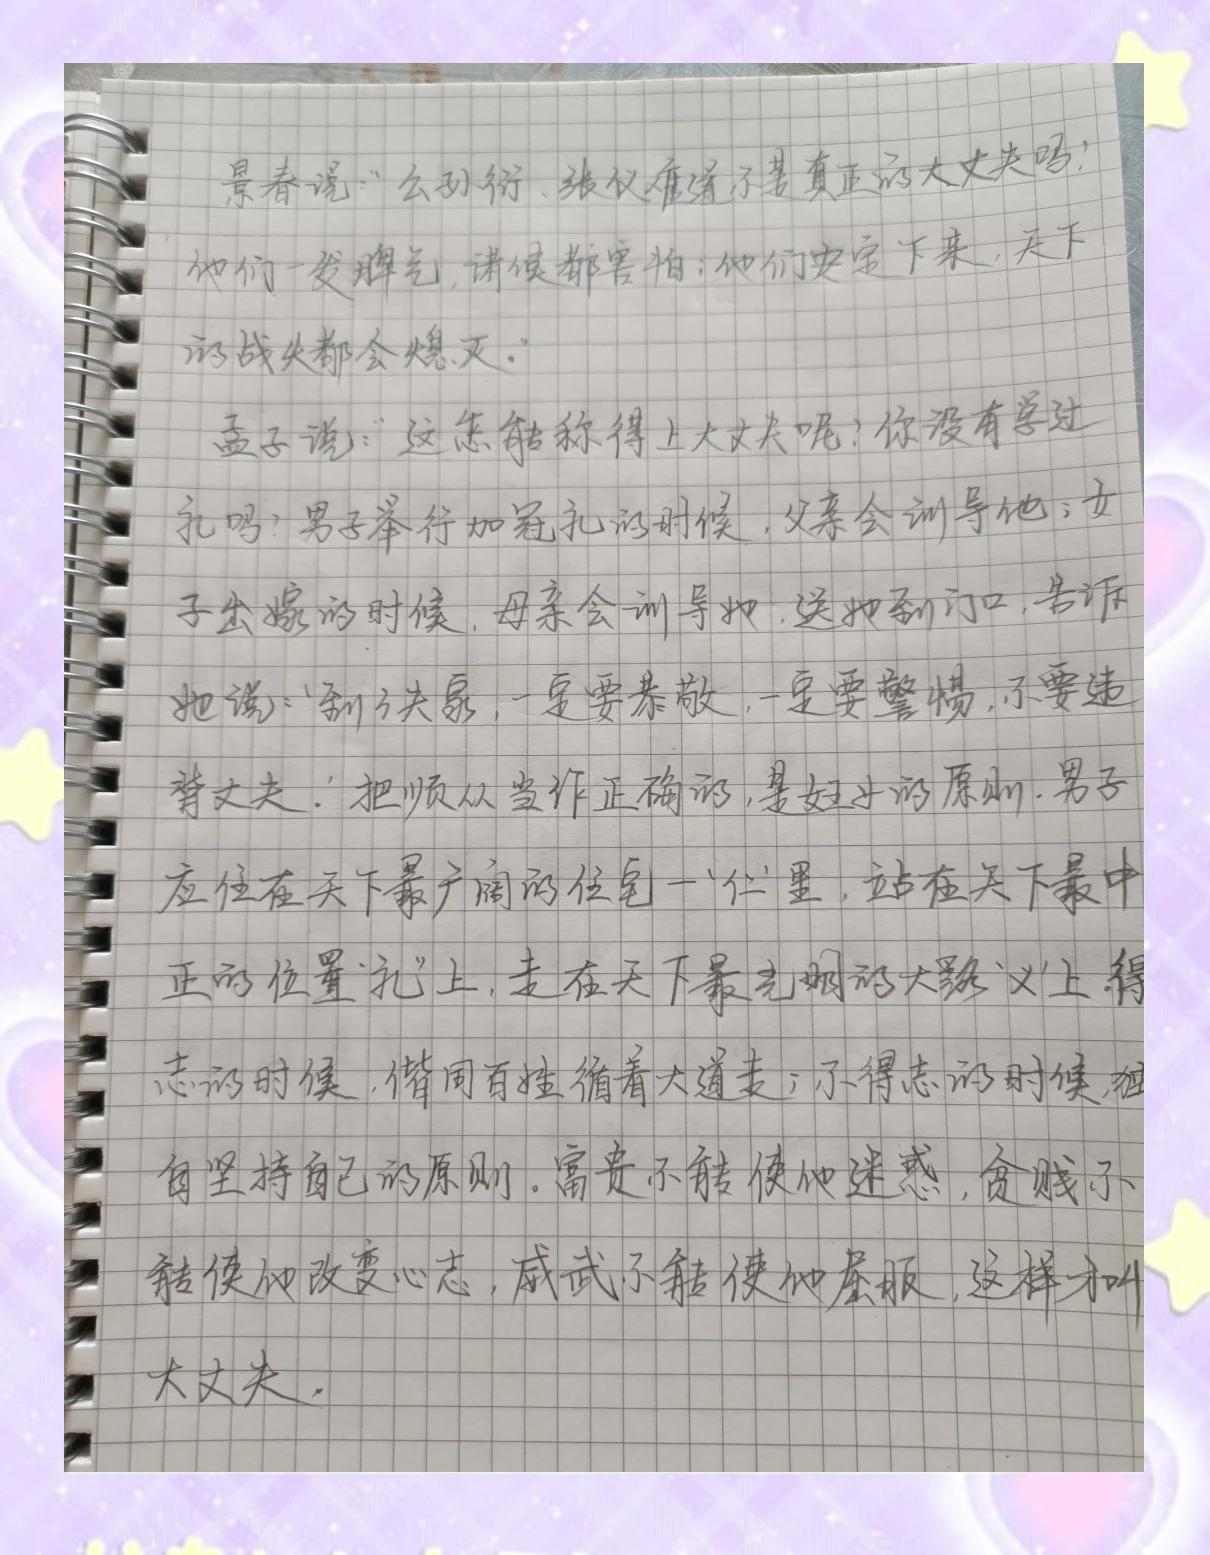 景春说:"公孙衍、张仪难道不是真正的大丈夫吗?
他们一发脾气,诸侯都害怕;他们安定下来,天下
的战火都会熄灭。"
孟子说:"这怎能称得上大丈夫呢?你没有学过
礼吗?男子举行加冠礼的时候,父亲会训导他;女
子出嫁的时候,母亲会训导她,送她到门口,告诉
她说:'到了夫家,一定要恭敬,一定要警惕,不要违
背丈夫.'把顺从当作正确的,是妇女的原则.男子
应住在天下最广阔的住宅—'仁'里,站在天下最中
正的位置"礼"上,走在天下最光明的大路'义'上.得
志的时候,偕同百姓循着大道走;不得志的时候,独
自坚持自己的原则。富贵不能使他迷惑,贫贱不
能使他改变心志,威武不能使他屈服,这样才叫
大丈夫.